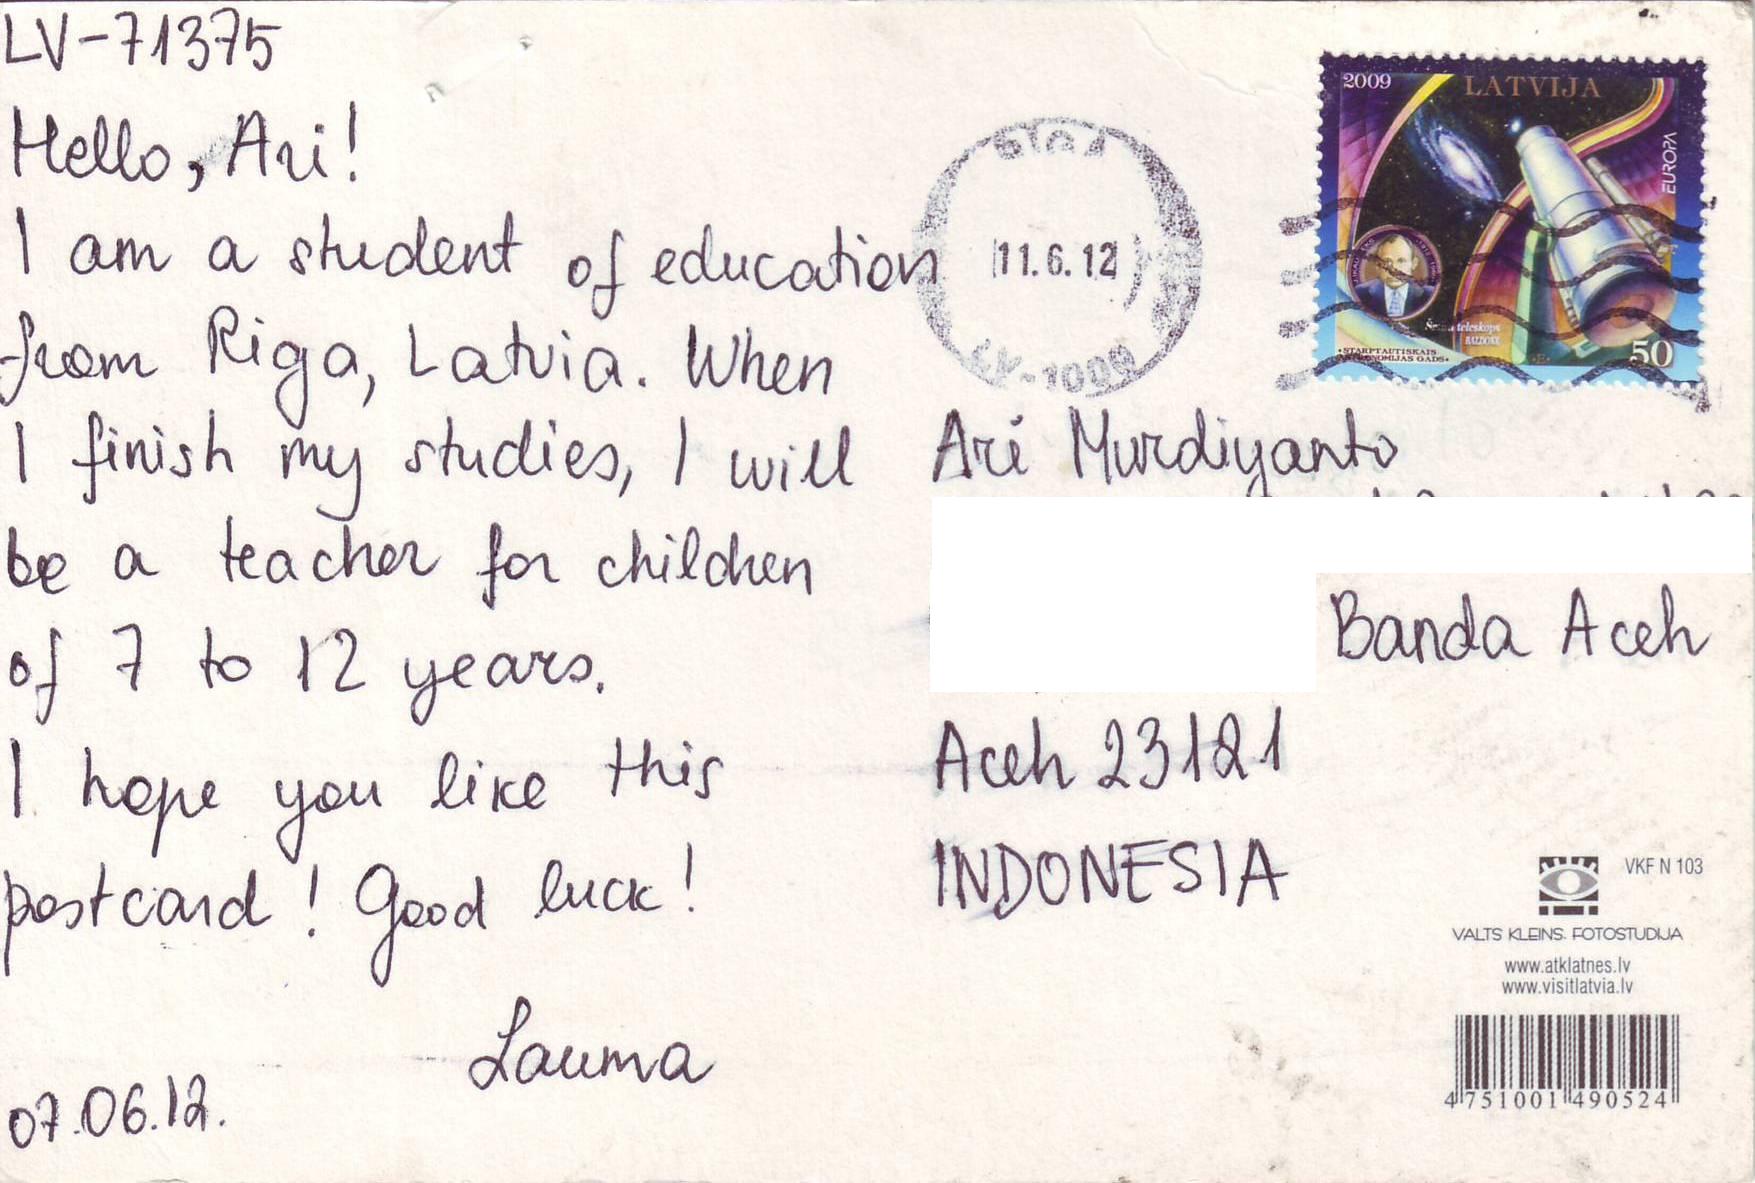 LV-71375
Hello, Ari!
I am a student of education
from Riga, Latvia. When
I finish my studies, I will
be a teacher for children
of 7 to 12 years.
I hope you like this
postcard! Good luck!
Lauma
07.06.12.
11.6.12
LV-1000
2009 LATVIJA
EUROPA
teleskops
BALDONE
•STARPTAUTISKAIS
ASTRONOMIJAS GADS•
50
Ari Murdiyanto
Banda Aceh
Aceh 23121
INDONESIA
VKF N 103
VALTS KLEINS. FOTOSTUDIJA
www.atklatnes.lv
www.visitlatvia.lv
4 751001 490524